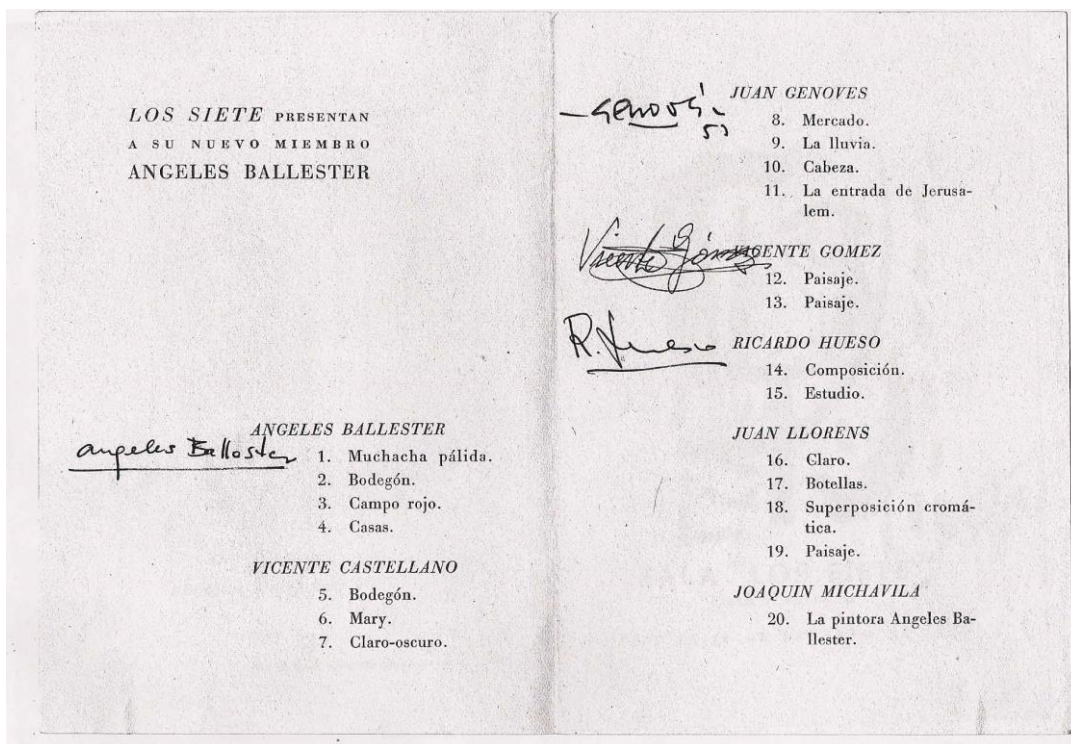 LOS SIETE PRESENTAN
A SU NUEVO MIEMBRO
ANGELES BALLESTER
ANGELES BALLESTER
angeles Ballester
1. Muchacha pálida.
2. Bodegón.
3. Campo rojo.
4. Casas.
VICENTE CASTELLANO
5. Bodegón.
6. Mary.
7. Claro-oscuro.
JUAN GENOVES
Genovés
53
8. Mercado.
9. La lluvia.
10. Cabeza.
11. La entrada de Jerusa-
lem.
Vicente Gómez
VICENTE GOMEZ
12. Paisaje.
13. Paisaje.
R. Hueso
RICARDO HUESO
14. Composición.
15. Estudio.
JUAN LLORENS
16. Claro.
17. Botellas.
18. Superposición cromá-
tica.
19. Paisaje.
JOAQUIN MICHAVILA
20. La pintora Angeles Ba-
llester.